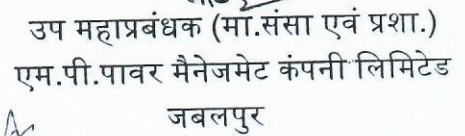 उप महाप्रबंधक (मा.संसा एवं प्रशा.)
एम.पी.पावर मैनेजमेट कंपनी लिमिटेड
जबलपुर